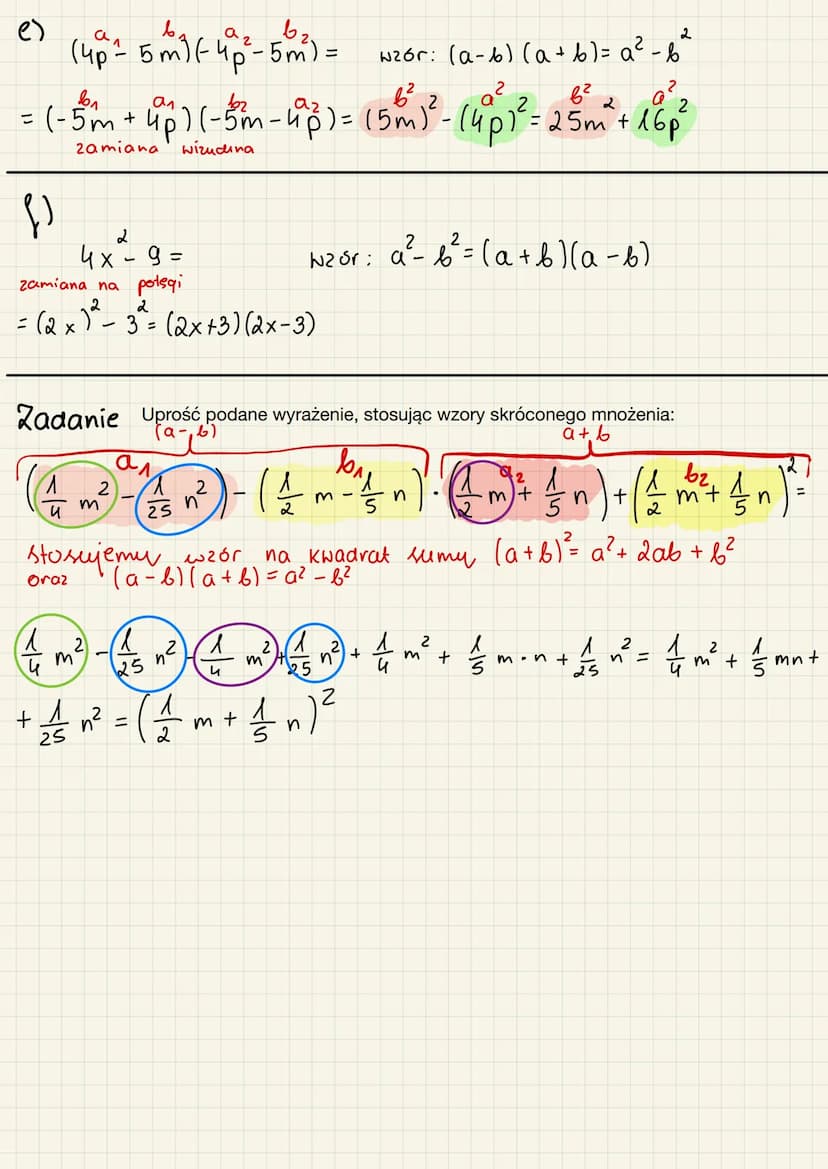 e) (4p - 5m)(-4p - 5m) = wzór: (a-b)(a+b) = a² - b²
a₁ b₁ a₂ b₂
b₁ a₁ b₂ a₂ b² a² b² a²
= (-5m + 4p)(-5m - 4p) = (5m)² - (4p)² = 25m² + 16p²
zamiana wizualna
f)
4x² - 9 = wzór: a² - b² = (a+b)(a-b)
zamiana na potęgi
= (2x)² - 3² = (2x+3)(2x-3)
Zadanie Uprość podane wyrażenie, stosując wzory skróconego mnożenia:
(a-b) a+b
a₁ b₁ a₂ b₂
(1/4 m² - 1/25 n²) - (1/2 m - 1/5 n) · (1/2 m + 1/5 n) + (1/2 m + 1/5 n)² =
stosujemy wzór na kwadrat sumy (a+b)² = a² + 2ab + b²
oraz (a-b)(a+b) = a² - b²
1/4 m² - 1/25 n² - 1/4 m² + 1/25 n² + 1/4 m² + 1/5 m·n + 1/25 n² = 1/4 m² + 1/5 mn +
+ 1/25 n² = (1/2 m + 1/5 n)²